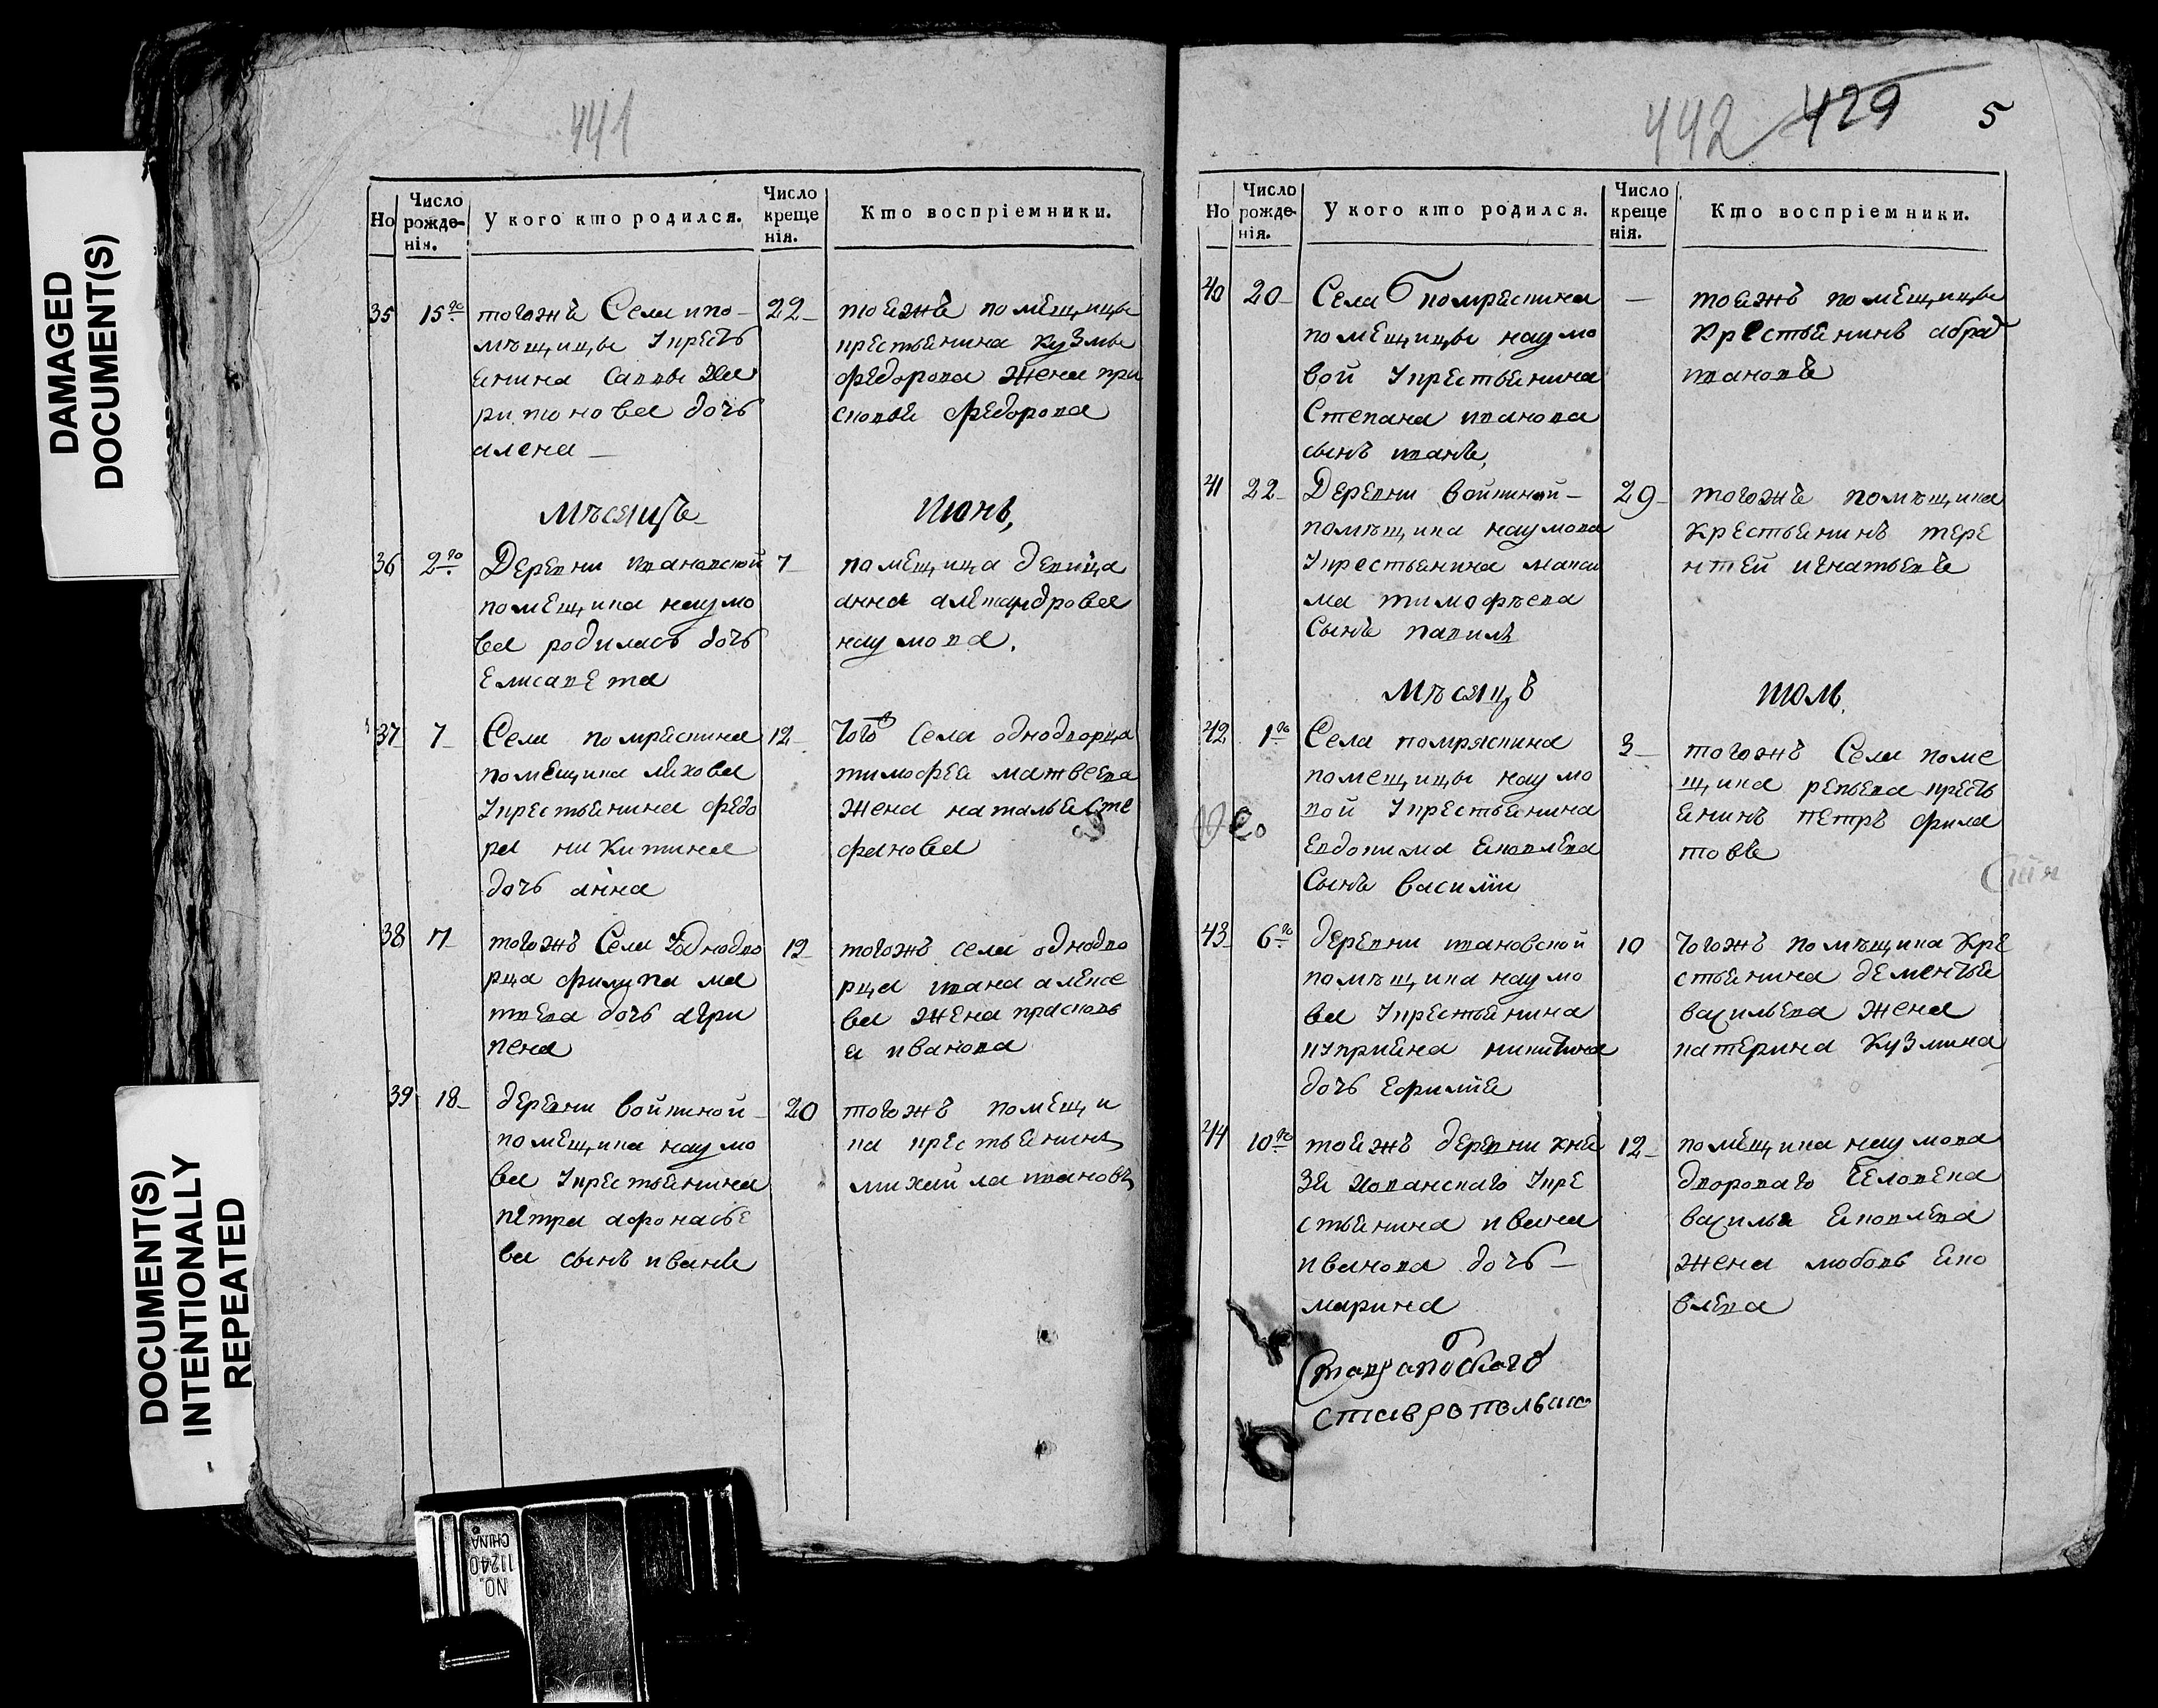 DAMAGED
DOCUMENT(S)
DOCUMENT(S)
INTENTIONALLY
REPEATED
441
Но
Число рожденія.
У кого кто родился.
Число крещенія.
Кто воспріемники.
35 15го
тогожъ Села ипо-
мѣщицы Укресть
енина Саввы Ха
ритонова дочь
алена
22
тоежъ помещицы
крестьянина кузмы
федорова жена пра
сковья федорова
Мѣсяцъ
Июнь,
36 2го
Деревни ивановской
помещика наумо
ва родилась дочь
Елисавета
7
помещица девица
анна
наумова.
37 7
Села помряскина
помещика
Укрестьянина федо
ра никитина
дочь анна
12
того села однодворца
тимофея матвеева
жена наталья сте
фанова
38 7
тогожъ Села Уоднодво
рца филипа ма
твева дочь агри
пена
12
тогожъ села однодво
рца ивана алексе
ва жена прасковь
я иванова
39 18
деревни войкиной
помещика наумо
ва Укрестьянина
петра афонасье
ва сынъ иванъ
20
тогожъ помещи
ка крестьянинъ
михайла ивановъ
NO.
11240
CHINA
442 429 5
Но
Число рожденія.
У кого кто родился.
Число крещенія.
Кто воспріемники.
40 20
Села помряскина
помещицы наумо
вой Укрестьянина
Степана иванова
сынъ иванъ,
тоежъ помещицы
Крестьянинъ
ивановъ
41 22
Деревни войкиной
помѣщика наумова
Укрестьянина макси
ма тимофѣева
Сынъ павилъ
29
тогожъ помѣщика
крестьянинъ тере
нтей игнатьевъ
Мѣсяцъ
июль
42 1го
Села помряскина
помещицы наумо
вой Укрестьянина
Евдокима яковлева
Сынъ василїи
3
тогожъ Села поме
щика репьева кресть
янинъ петръ фила
товъ
43 6го
деревни ивановской
помѣщика наумо
ва Укрестьянина
куприяна никитина
дочь ефимїя
10
тогожъ помѣщика кре
стьянина дементья
васильева жена
катерина кузмина
44 10го
тоежъ деревни кня
зя хованскаго Укре
стьянина ивана
иванова дочь
марина
12
помещика наумова
дворова го человека
василья яковлева
жена любовь яко
влева
ставропольска